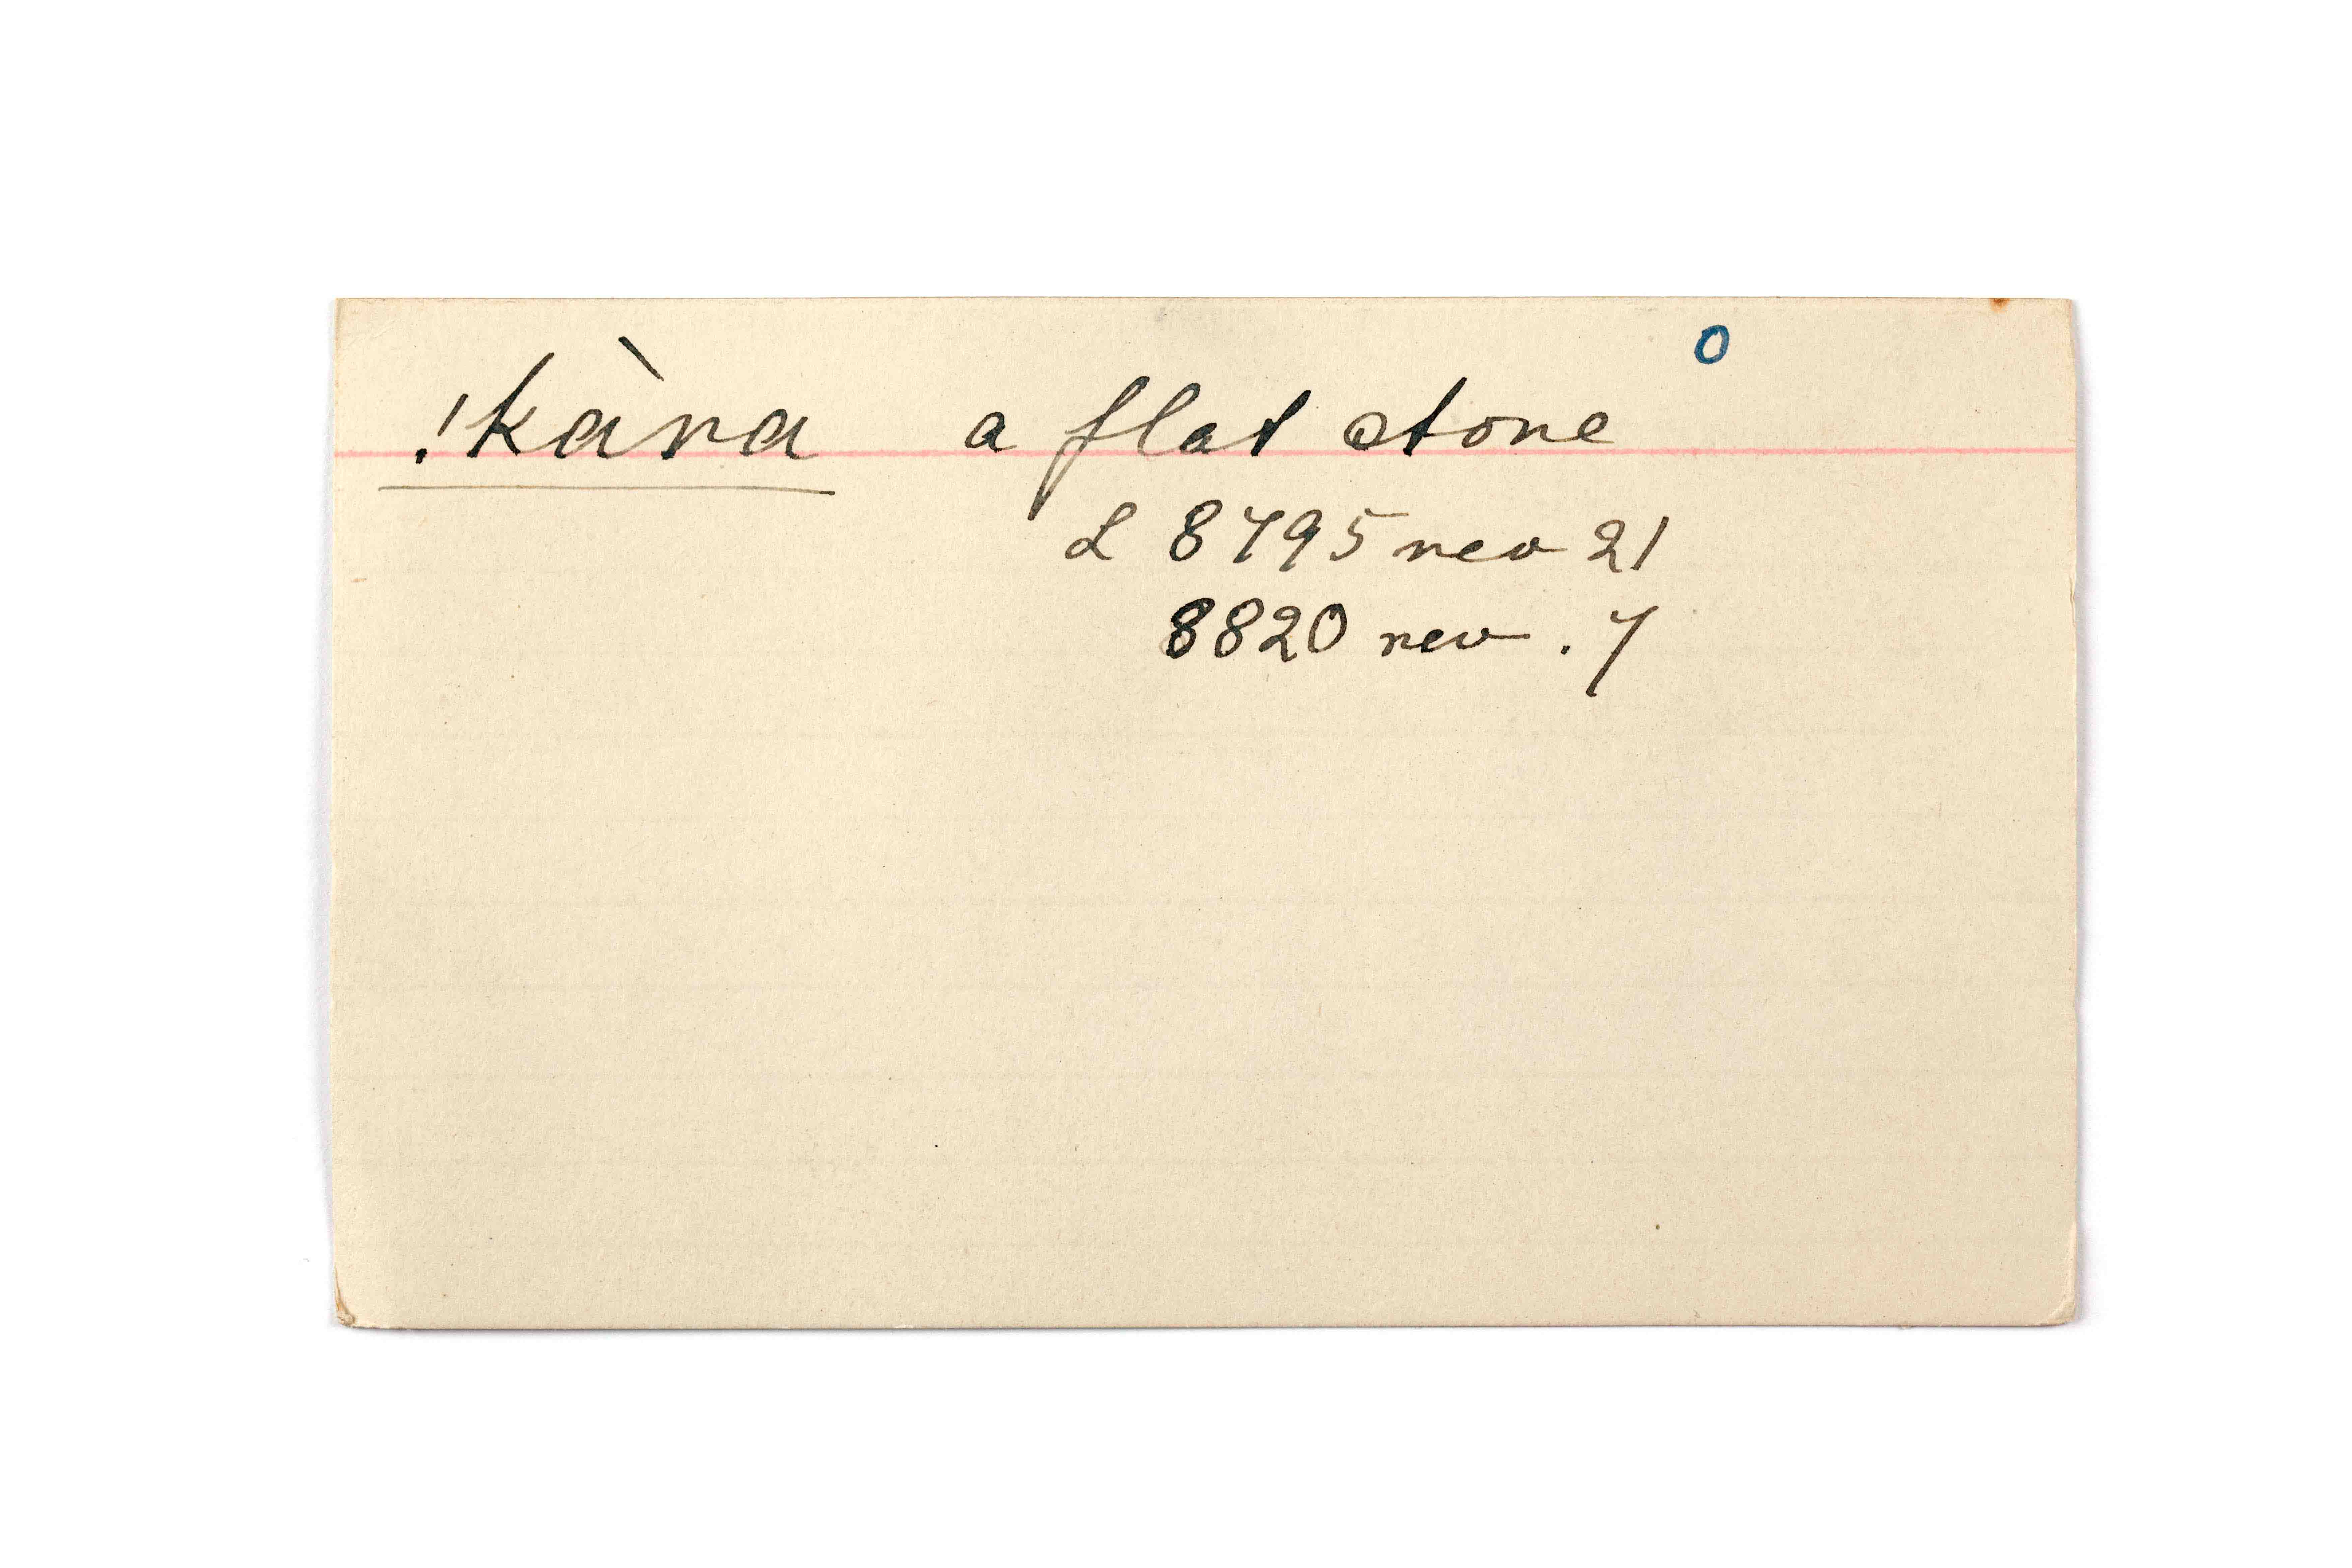 o
!kàra a flat stone
L 8795 rev 21
8820 rev . 7